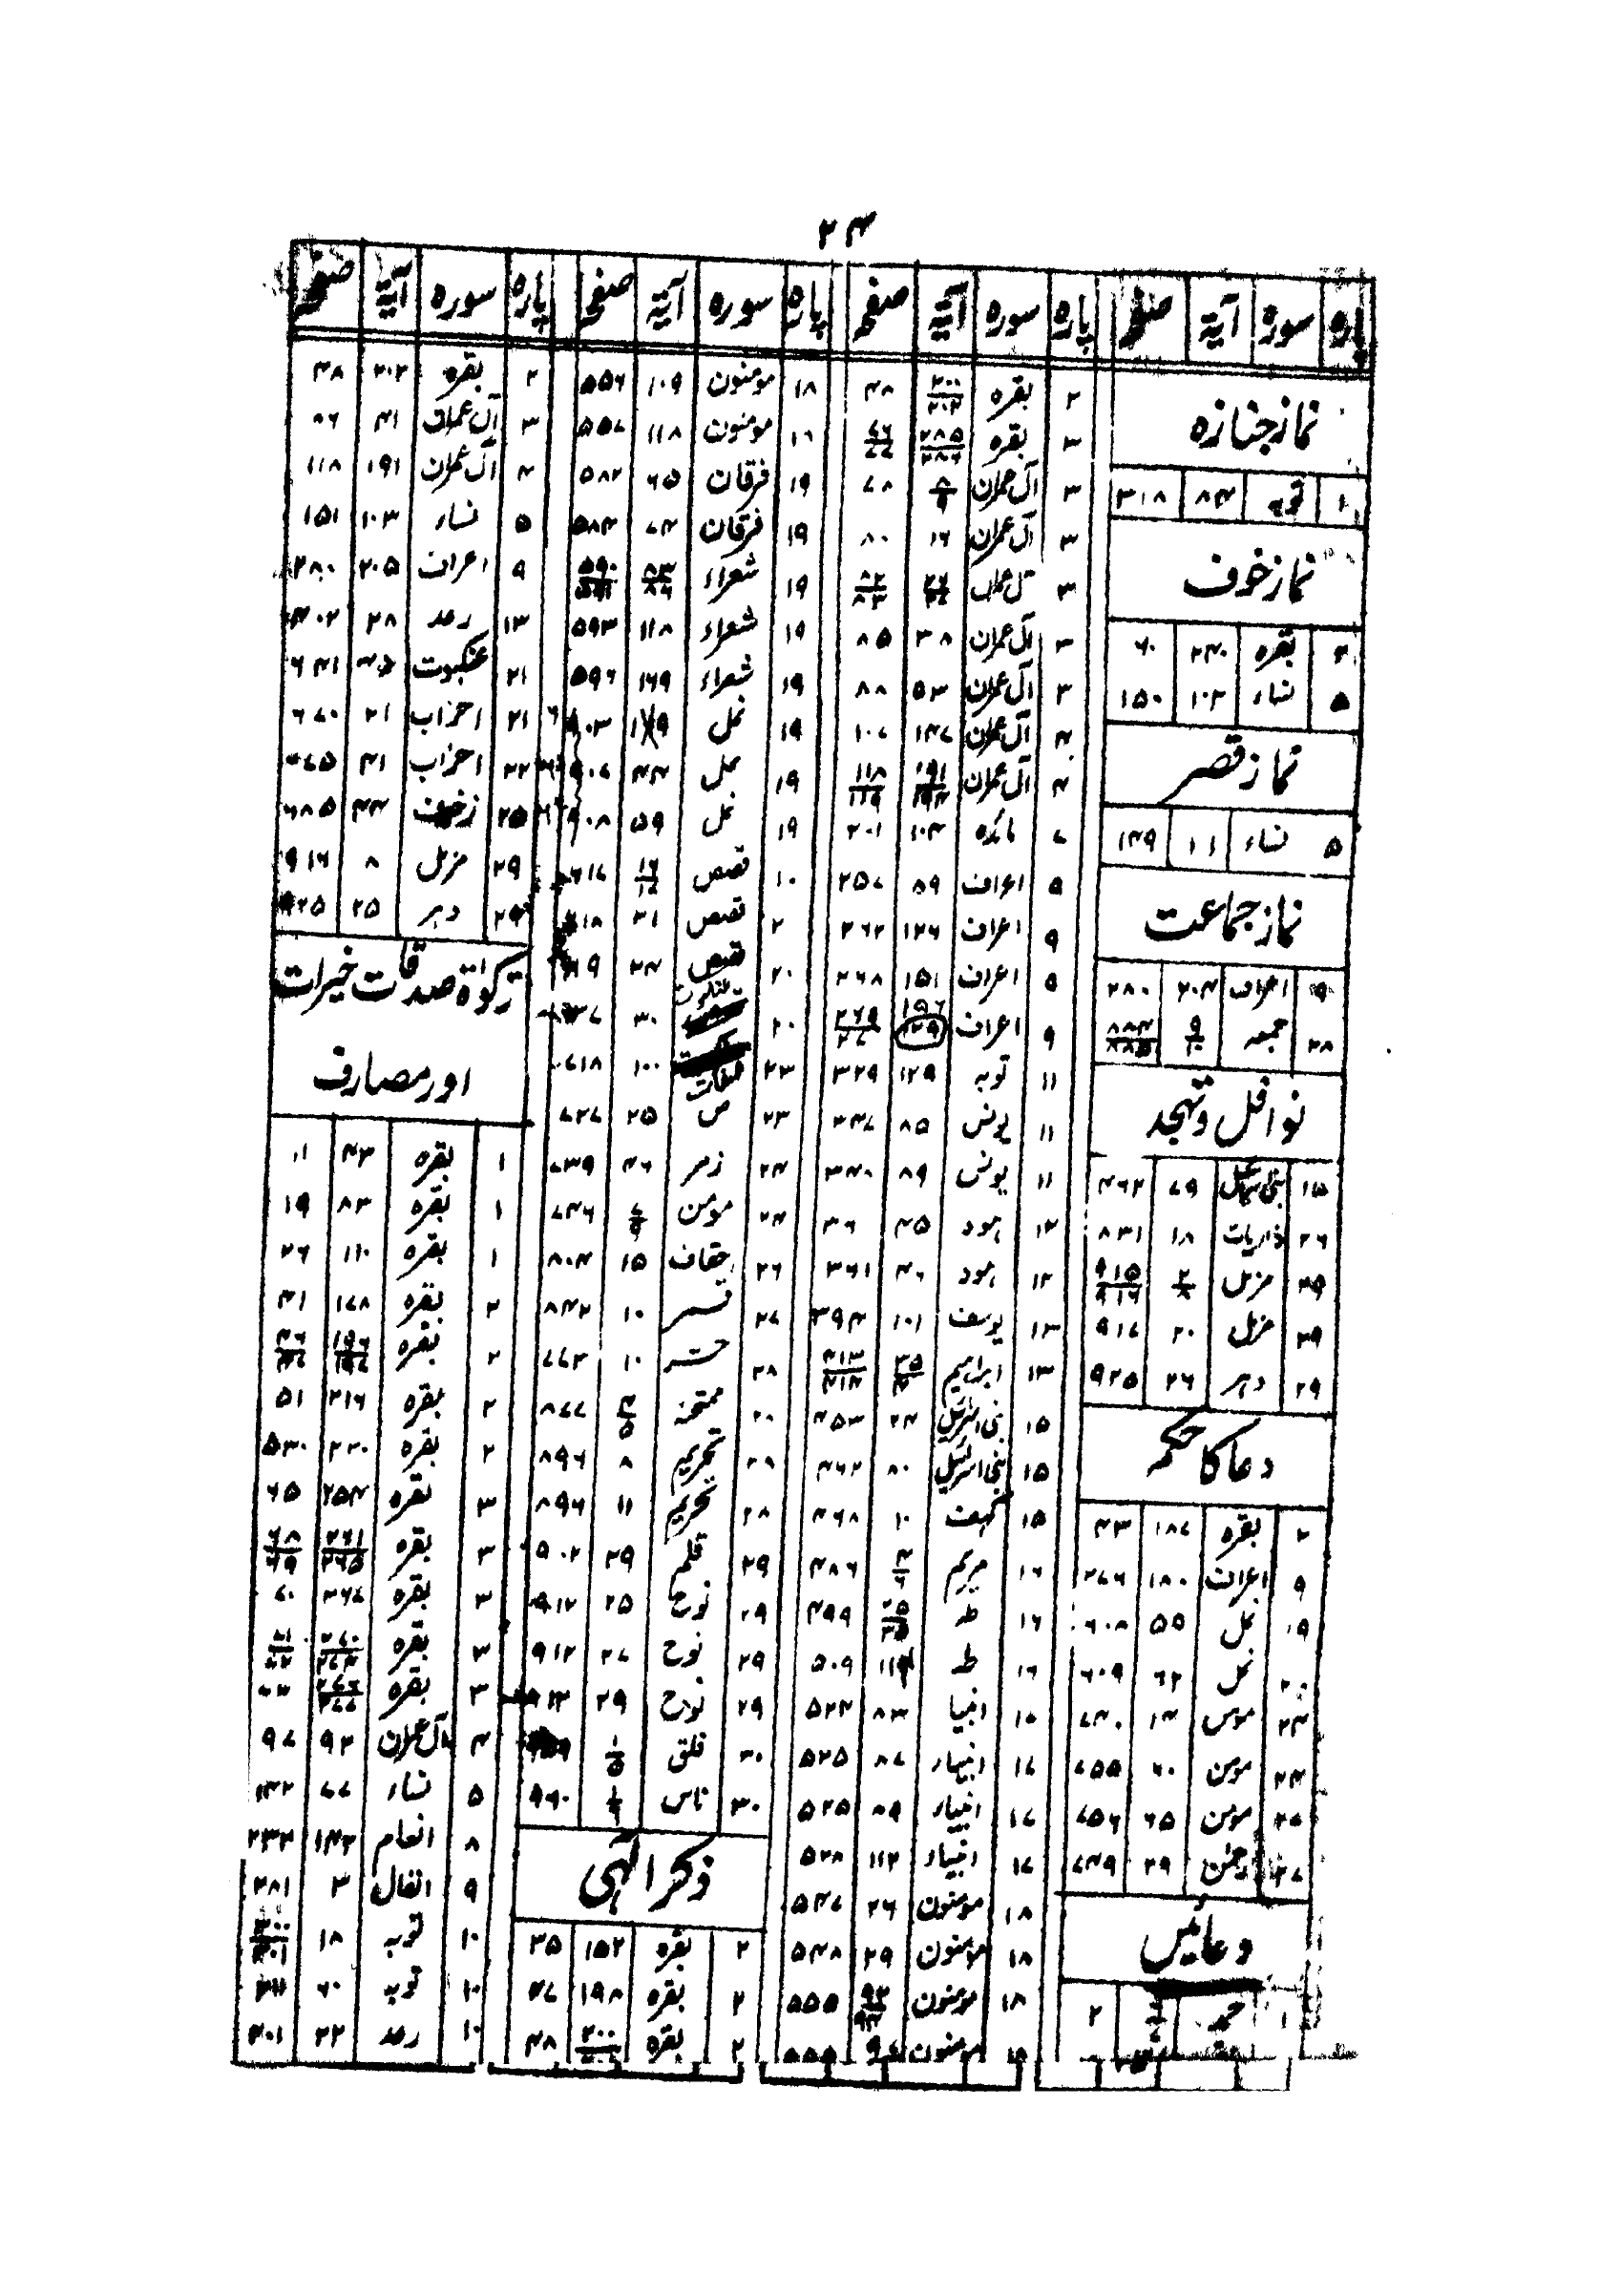 ۲۴
پارہ سورہ آیة صفحہ
نماز جنازہ
۱۰ توبہ ۸۴ ۳۱۸
نماز خوف
۲ بقرہ ۲۴۰ ۶۰
۵ نساء ۱۰۲ ۱۵۰
نماز قصر
۵ نساء ۱۰۱ ۱۴۹
نماز جماعت
۹ اعراف ۲۰۴ ۲۸۰
۲۸ جمعہ ۹/۱۰ ۸۸۴/۸۸۵
نوافل و تہجد
۱۵ بنی اسرائیل ۷۹ ۴۶۲
۲۶ ذاریات ۱۸ ۸۳۱
۲۹ مزمل ۲/۸ ۹۱۵/۹۱۶
۲۹ مزمل ۲۰ ۹۱۷
۲۹ دہر ۲۶ ۹۲۵
دعا کا حکم
۲ بقرہ ۱۸۷ ۴۳
۹ اعراف ۱۸۰ ۲۷۶
۱۹ نمل ۵۵ ۶۰۸
۲۰ نمل ۶۲ ۶۰۹
۲۴ مومن ۱۴ ۷۴۰
۲۴ مومن ۶۰ ۷۵۵
۲۴ مومن ۶۵ ۷۵۶
۲۷ رحمٰن ۲۹ ۸۴۹
دعائیں
۱ حمد ۲
پارہ سورہ آیة صفحہ
۲ بقرہ ۲۰۰/۲۰۲ ۴۸
۳ بقرہ ۲۸۵/۲۸۶ ۷۶/۷۷
۳ آل عمران ۸/۹ ۷۸
۳ آل عمران ۱۶ ۸۰
۳ آل عمران ۲۶/۲۷ ۸۲/۸۳
۳ آل عمران ۳۸ ۸۵
۳ آل عمران ۵۳ ۸۸
۴ آل عمران ۱۴۷ ۱۰۷
۴ آل عمران ۱۹۱/۱۹۴ ۱۱۸/۱۱۹
۷ مائدہ ۱۰۴ ۲۰۱
۹ اعراف ۸۹ ۲۵۷
۹ اعراف ۱۲۶ ۲۶۲
۹ اعراف ۱۵۱ ۲۶۸
۹ اعراف
۱۱ توبہ ۱۲۹ ۳۲۹
۱۱ یونس ۸۵ ۳۴۷
۱۱ یونس ۸۹ ۳۴۸
۱۲ ہود ۴۵ ۳۶
۱۲ ہود ۴۶ ۳۶۱
۱۳ یوسف ۱۰۱ ۳۹۴
۱۳ ابراہیم ۳۵ ۴۱۳/۴۱۴
۱۵ بنی اسرائیل ۲۴ ۴۵۳
۱۵ بنی اسرائیل ۸۰ ۴۶۲
۱۵ کہف ۱۰ ۴۶۸
۱۶ مریم ۴/۶ ۴۸۶
۱۶ طہ ۲۵/۳۵ ۴۹۹
۱۶ طہ ۱۱۴ ۵۰۹
۱۷ انبیا ۸۳ ۵۲۴
۱۷ انبیاء ۸۷ ۵۲۵
۱۷ انبیاء ۸۹ ۵۲۵
۱۷ انبیاء ۱۱۲ ۵۲۸
۱۸ مومنون ۲۶ ۵۴۷
۱۸ مومنون ۲۹ ۵۴۸
۱۸ مومنون ۹۳/۹۴ ۵۵۵
۱۸ مومنون
پارہ سورہ آیة صفحہ
۱۸ مومنون ۱۰۹ ۵۵۶
۱۸ مومنون ۱۱۸ ۵۵۷
۱۹ فرقان ۶۵ ۵۸۲
۱۹ فرقان ۷۴ ۵۸۴
۱۹ شعراء ۸۳/۸۹ ۵۹۰/۵۹۱
۱۹ شعراء ۱۱۸ ۵۹۳
۱۹ شعراء ۱۶۹ ۵۹۶
۱۹ نمل ۱۹ ۶۰۳
۱۹ نمل ۴۴ ۶۰۷
۱۹ نمل ۵۹ ۶۰۸
۲۰ قصص ۱۶/۱۷ ۶۱۷
۲۰ قصص ۲۱ ۶۱۸
۲۰ قصص ۲۴ ۶۱۹
۲۰ عنکبوت ۳۰ ۶۳۷
۲۳ صافات ۱۰۰ ۷۱۸
۲۳ ص ۳۵ ۷۲۷
۲۴ زمر ۴۶ ۷۳۹
۲۴ مومن ۷/۹ ۷۴۶
۲۶ احقاف ۱۵ ۸۰۴
۲۷ قمر ۱۰ ۸۴۲
۲۸ حشر ۱۰ ۸۷۳
۲۸ ممتحنہ ۴/۵ ۸۷۷
۲۸ تحریم ۸ ۸۹۶
۲۸ تحریم ۱۱ ۸۹۶
۲۹ قلم ۲۹ ۹۰۲
۲۹ نوح ۲۵ ۹۱۲
۲۹ نوح ۲۷ ۹۱۲
۲۹ نوح ۲۹ ۹۱۳
۳۰ فلق ۱/۵
۳۰ ناس ۱/۶ ۹۶۰
ذکر الٰہی
۲ بقرہ ۱۵۲ ۳۵
۲ بقرہ ۱۹۸ ۴۷
۲ بقرہ ۲۰۰ ۴۸
پارہ سورہ آیة صفحہ
۲ بقرہ ۲۰۳ ۴۸
۳ آل عمران ۴۱ ۸۶
۴ آل عمران ۱۹۱ ۱۱۸
۵ نساء ۱۰۳ ۱۵۱
۹ اعراف ۲۰۵ ۲۸۰
۱۳ رعد ۲۸ ۴۰۲
۲۱ عنکبوت ۴۵ ۶۴۱
۲۱ احزاب ۲۱ ۶۷۰
۲۲ احزاب ۴۱ ۶۷۵
۲۵ زخرف ۴۴ ۷۸۵
۲۹ مزمل ۸ ۹۱۶
۲۹ دہر ۲۵ ۹۲۵
زکوٰة صدقات خیرات
اور مصارف
۱ بقرہ ۴۳ ۱۱
۱ بقرہ ۸۳ ۱۹
۱ بقرہ ۱۱۰ ۲۶
۲ بقرہ ۱۷۸ ۴۱
۲ بقرہ ۱۹۶/۱۹۷ ۴۶/۴۷
۲ بقرہ ۲۱۶ ۵۱
۲ بقرہ ۲۲۰ ۵۳
۳ بقرہ ۲۵۴ ۶۵
۳ بقرہ ۲۶۱/۲۶۵ ۶۸/۶۹
۳ بقرہ ۲۶۷ ۷۰
۳ بقرہ ۲۷۰/۲۷۴ ۷۱/۷۲
۳ بقرہ ۲۷۶/۲۷۷ ۷۳
۴ آل عمران ۹۲ ۹۷
۵ نساء ۷۷ ۱۴۲
۸ انعام ۱۴۲ ۲۳۳
۹ انفال ۳ ۲۸۱
۱۰ توبہ ۱۸
۱۰ توبہ ۶۰ ۳۱۱
۱۰ رعد ۲۲ ۴۰۱